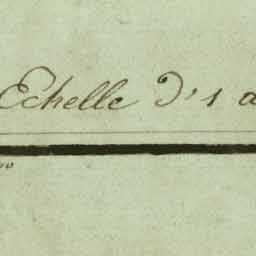 Echelle D's a